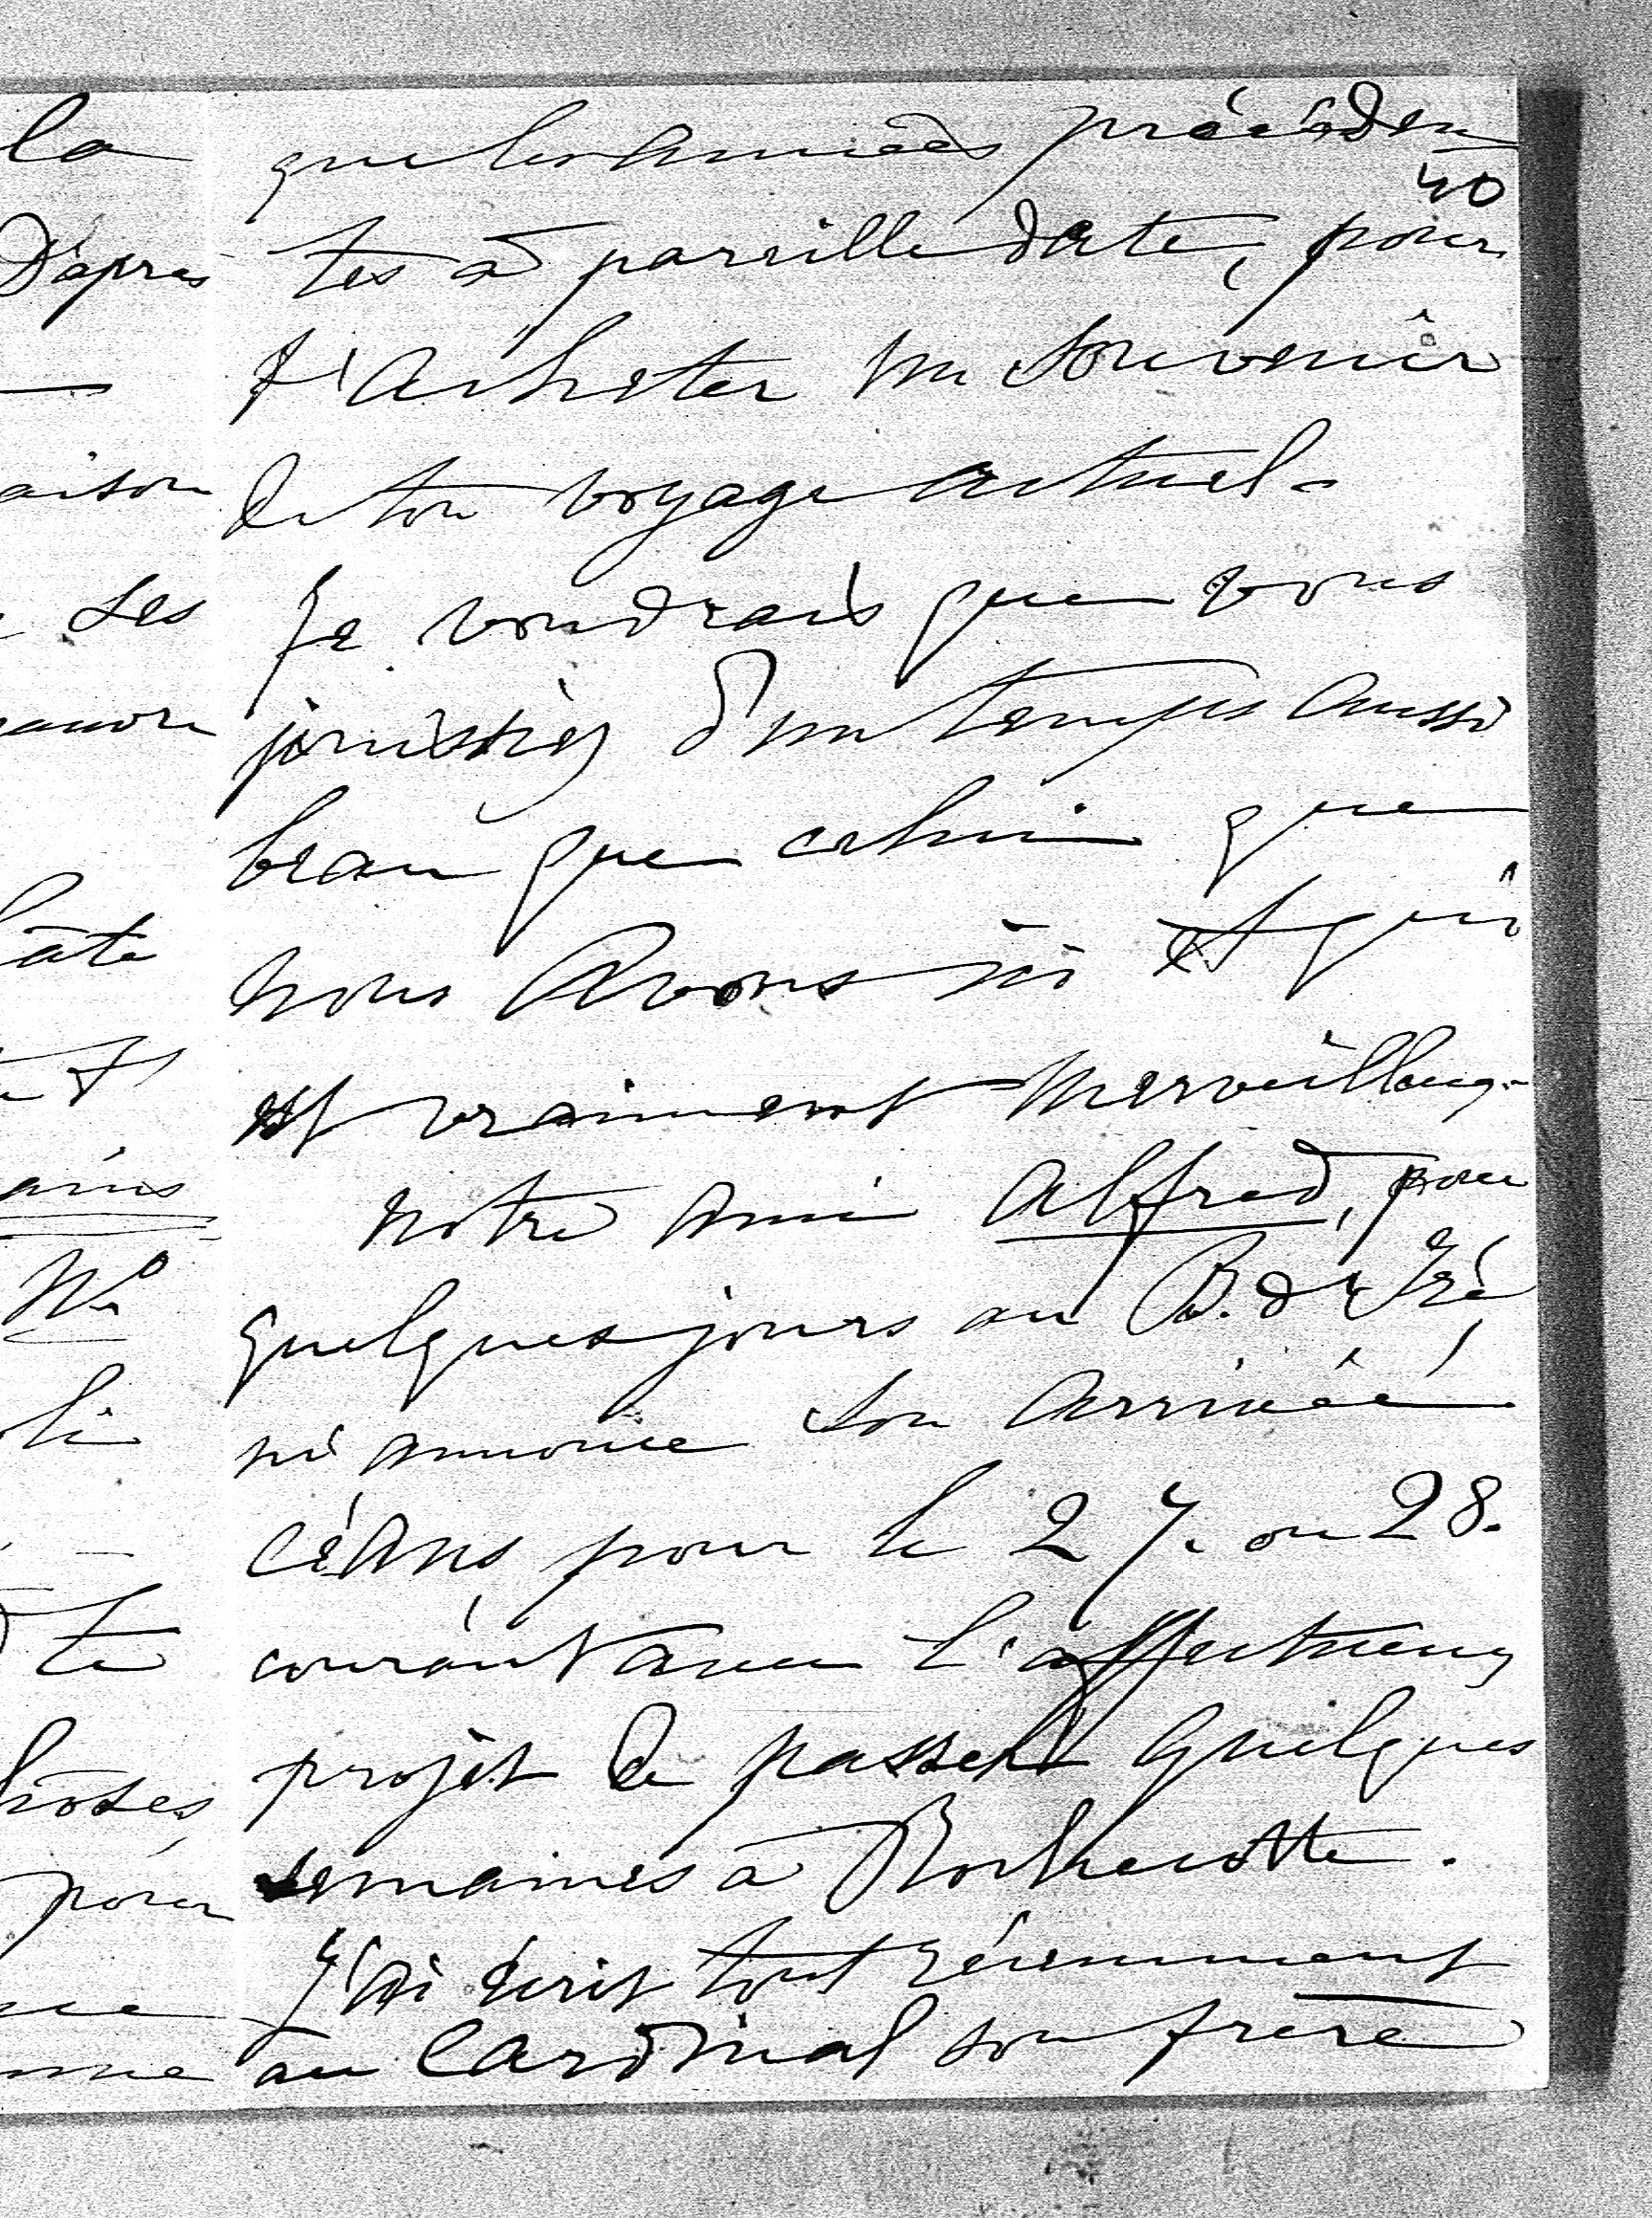 que les années précéden
40
tes à pareille date, pour
t'acheter un souvenir
de ton voyage actuel.
Je voudrais que vous
jouissiez d'un temps aussi
beau que celui que
nous avons ici et qui
est vraiment merveilleux.
Notre ami Alfred, pour
quelques jours au B. d
m'annonce son arrivée
céans pour le 27. ou 28.
courant avec l'affectueux
projet de passer quelques
semaines à Rochecotte.
J'ai écrit tout récemment
au Cardinal son frère
la
D'après
aison
ses
auvre
hâte
Nº
te
choses
pour